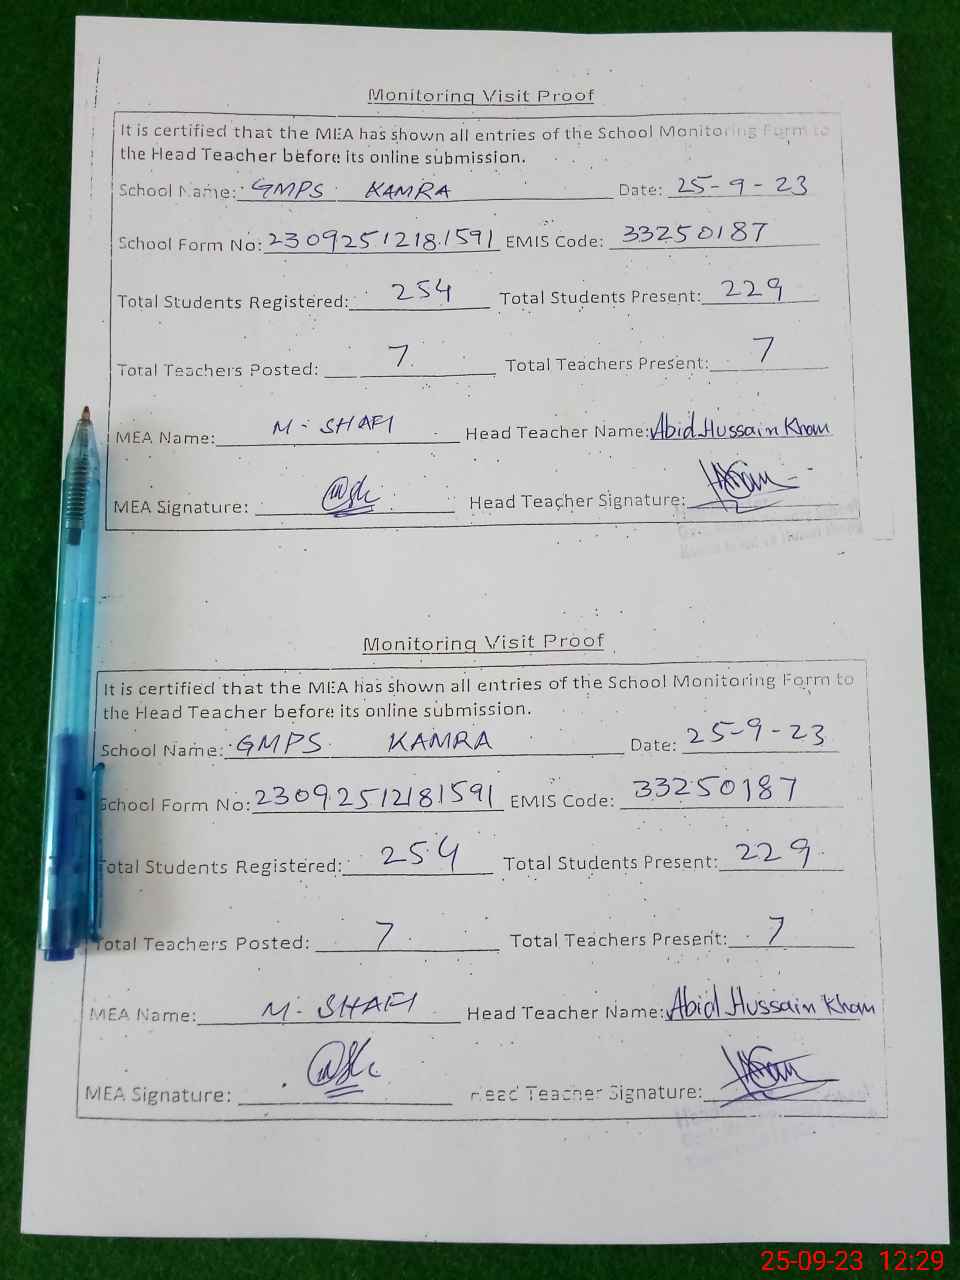 Monitoring Visit Proof
It is certified that the MEA has shown all entries of the School Monitoring Form to
the Head Teacher before its online submission.
School Name: GMPS KAMRA Date: 25-9-23
School Form No: 23092512181591 EMIS Code: 33250187
Total Students Registered: 254 Total Students Present: 229
Total Teachers Posted: 7 Total Teachers Present: 7
MEA Name: M. SHAFI Head Teacher Name: Abid Hussain Khan
MEA Signature: Head Teacher Signature:
Monitoring Visit Proof
It is certified that the MEA has shown all entries of the School Monitoring Form to
the Head Teacher before its online submission.
School Name: GMPS KAMRA Date: 25-9-23
School Form No: 23092512181591 EMIS Code: 33250187
Total Students Registered: 254 Total Students Present: 229
Total Teachers Posted: 7 Total Teachers Present: 7
MEA Name: M. SHAFI Head Teacher Name: Abid Hussain Khan
MEA Signature: Head Teacher Signature:
25-09-23 12:29